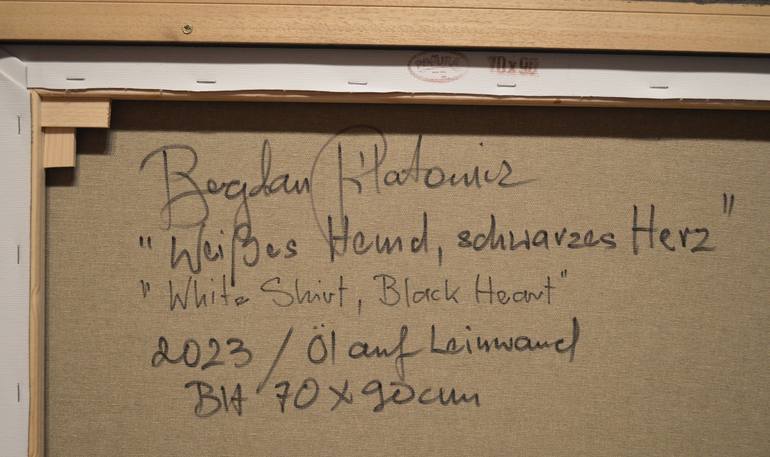 70x90
Bogdan
"Weißes Hemd, schwarzes Herz"
"White Shirt, Black Heart"
2023 / Öl auf Leinwand
BH 70 x 90 cm